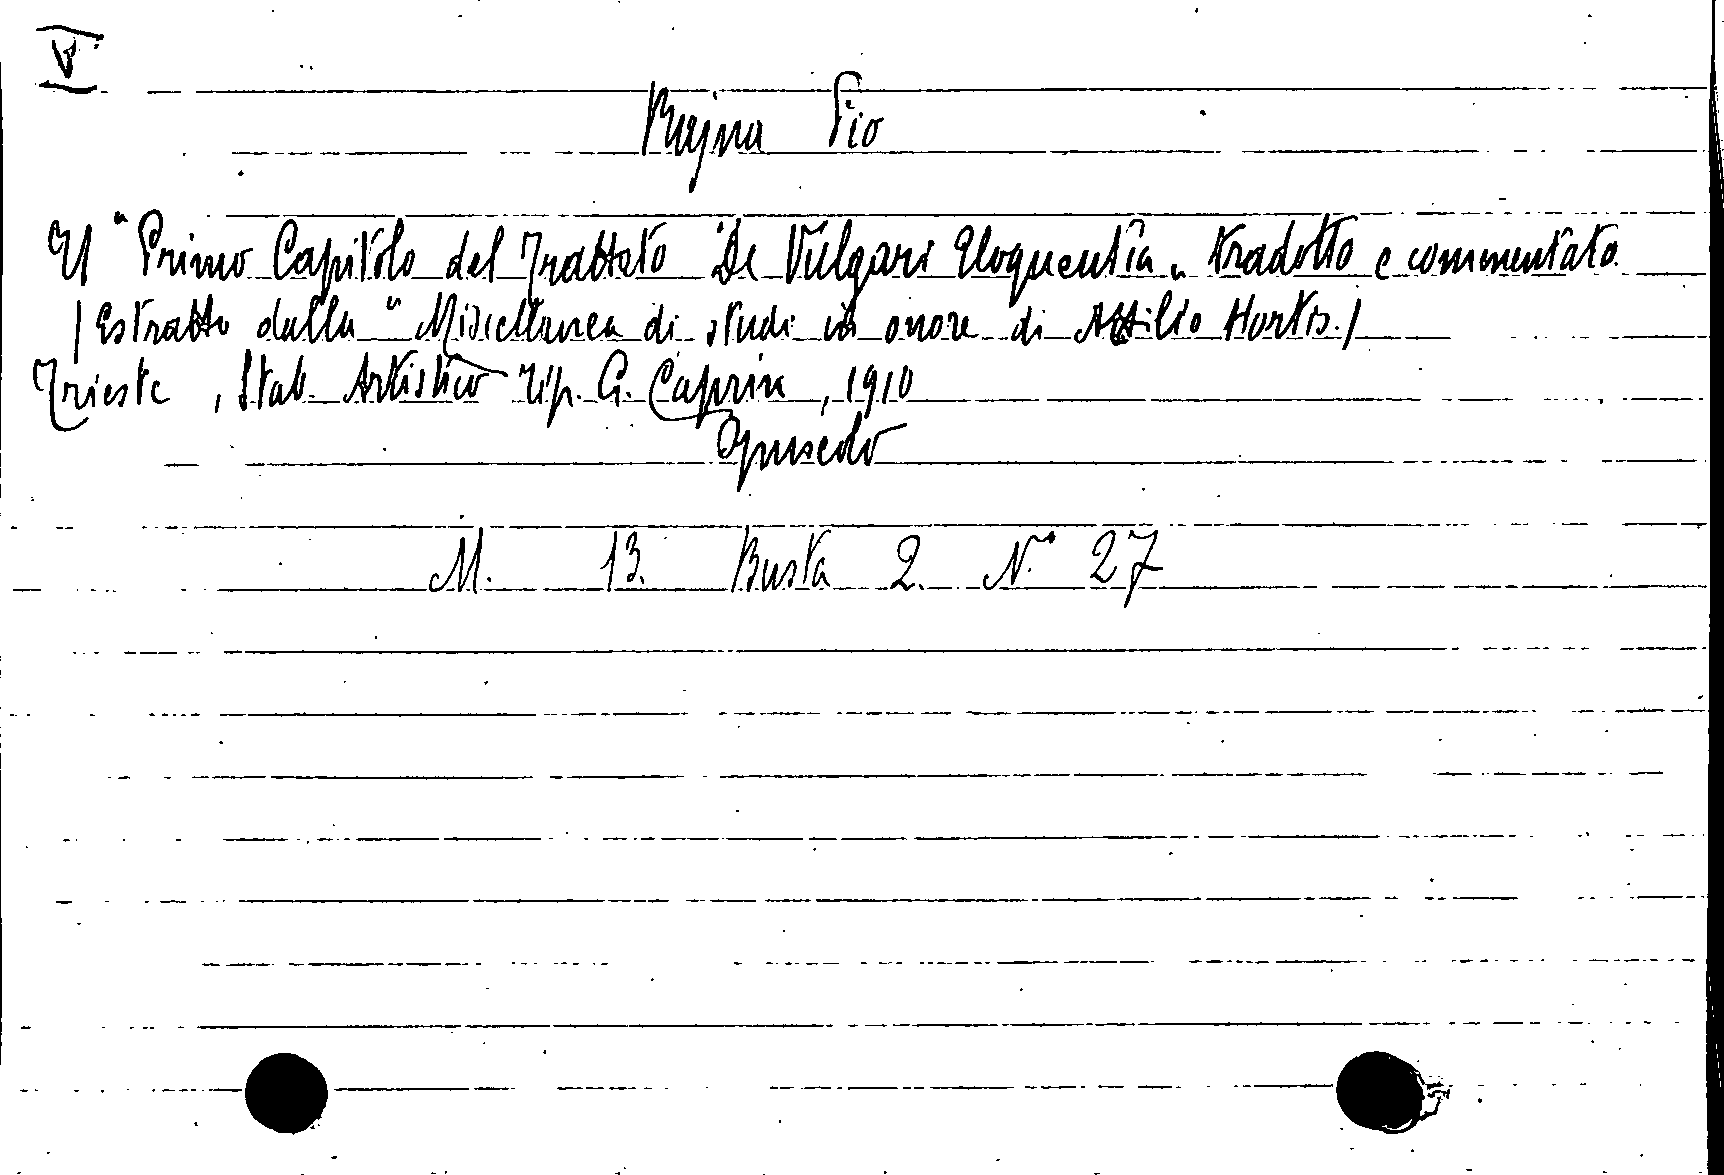 V
Rajna Pio
Il " Primo Capitolo del Trattato "De Vulgari Eloquentia" tradotto e commentato.
/Estratto dalla " Miscellanea di studi in onore di Attilio Hortis./
Trieste, Stab. Artistico Tip. G. Caprin, 1910
Opuscolo
M. 13. Busta 2. N.° 27